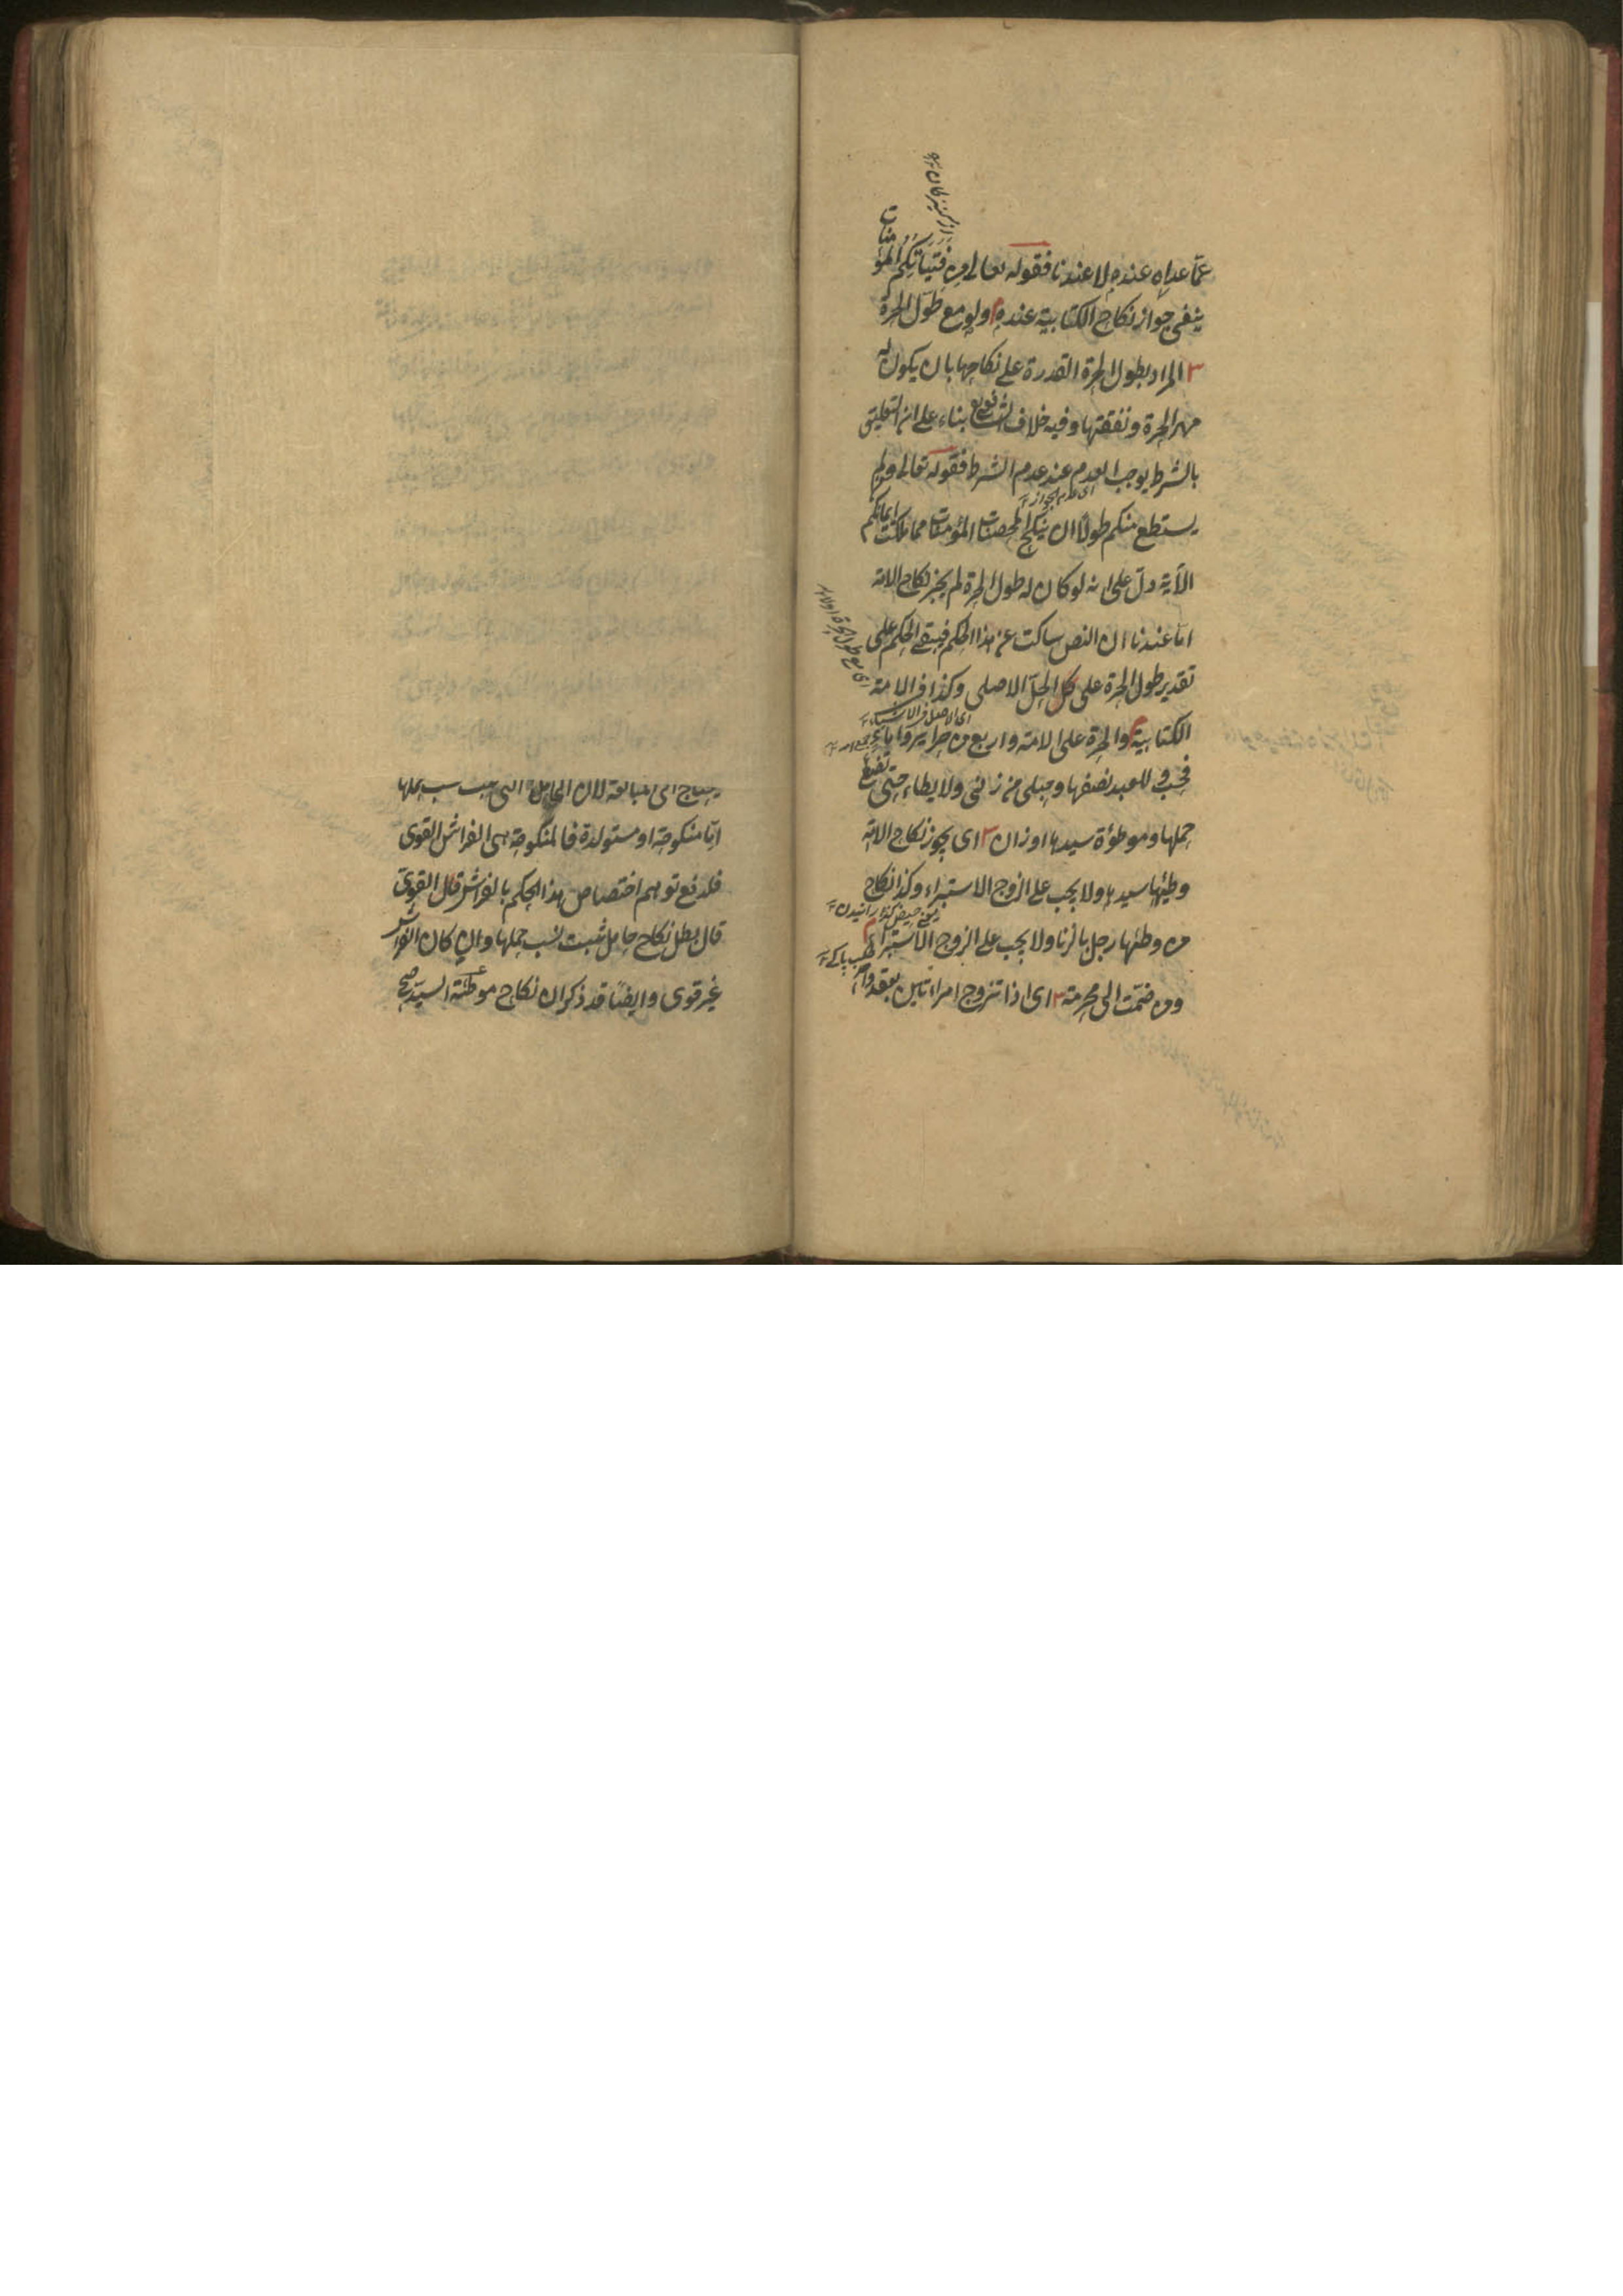 عمّا عداه عنده لا عندنا فقوله تعالى من فَتَيَاتِكُم المؤمنات
ينفى جواز نكاح الكتابية عنده م ولو مع طول الحرة
ش المراد بطول الحرة القدرة على نكاحها بان يكون له
مهر الحرة ونفقتها وفيه خلاف الشافعي بناء على ان التعليق
بالشرط يوجب العدم عند عدم الشرط فقوله تعالى ومن لم
يستطع منكم طولًا ان ينكح المحصنات المؤمنات مما ملكت ايمانكم
الآية دلّ على انه لو كان له طول الحرة لم يجز نكاح الامة
اما عندنا ان النص ساكت عن هذا الحكم فيبقى الحكم على
تقدير طول الحرة على الحلّ الاصلى وكذا فى الامة
الكتابية م والحرة على الامة واربع من حراير واماء
فحسب وللعبد نصفها وحبلى من زنى ولا يطاء حتى تضع
حملها وموطؤة سيدها او زان ش اى يجوز نكاح الامة
وطئها سيدها ولا يجب على الزوج الاستبراء وكذا نكاح
من وطئها رجل بالزنا ولا يجب على الزوج الاستبراء
ومن ضمّت الى محرمة ش اى اذا تزوج امراءتين بعقد واحد
يحتاج الى المبالغة لان الحامل التى يثبت نسب حملها
امّا منكوحة او مستولدة فالمنكوحة هى الفراش القوى
فلدفع توهم اختصاص هذا الحكم بالفراش القوى
قال بطل نكاح حامل ثبت نسب حملها وان كان الفراش
غير قوى وايضًا قد ذكر ان نكاح موطئة السيّد صح